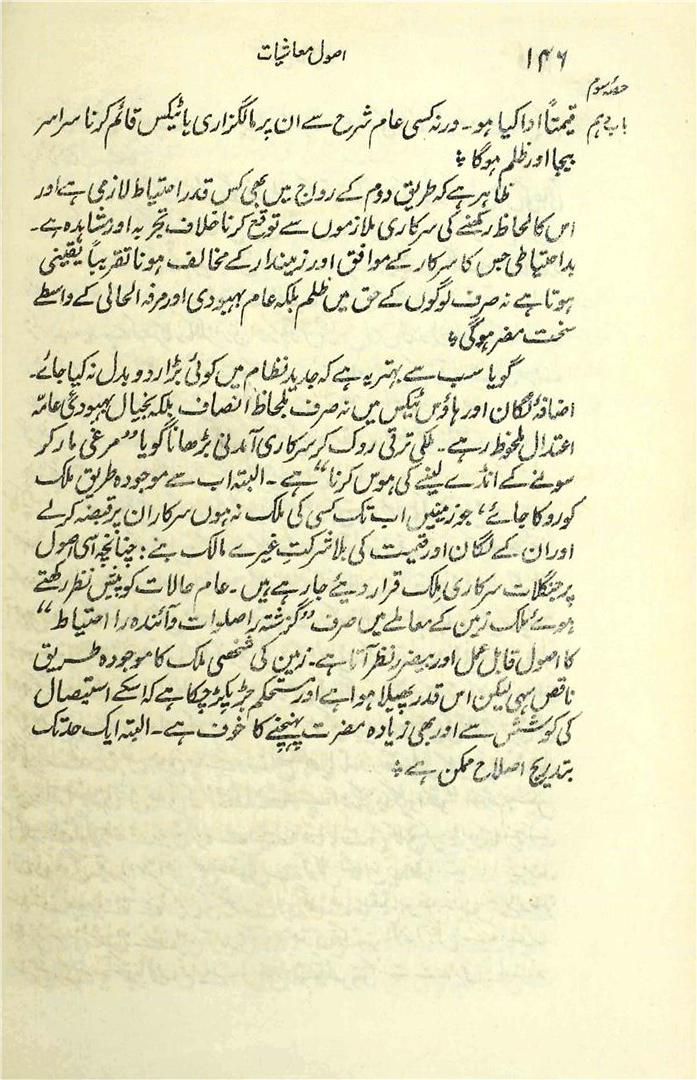 ۱۴۶
اصول معاشیات
حصۂ سوم
باب نہم
قیمتاً ادا کیا ہو۔ ورنہ کسی عام شرح سے ان پر مالگزاری یا ٹیکس قائم کرنا سراسر
بیجا اور ظلم ہوگا ؞
ظاہر ہے کہ طریق دوم کے رواج میں بھی کس قدر احتیاط لازمی ہے اور
اس کا لحاظ رکھنے کی سرکاری ملازموں سے توقع کرنا خلاف تجربہ اور مشاہدہ ہے۔
بد احتیاطی جس کا سرکار کے موافق اور زمیندار کے مخالف ہونا تقریباً یقینی
ہوتا ہے نہ صرف لوگوں کے حق میں ظلم بلکہ عام بہبودی اور مرفہ الحالی کے واسطے
سخت مضر ہوگی ؞
گویا سب سے بہتر یہ ہے کہ جدید نظام میں کوئی بڑا ردو بدل نہ کیا جائے۔
اضافۂ لگان اور ہاؤس ٹیکس میں نہ صرف بلحاظ انصاف بلکہ بخیال بہبودئی عامہ
اعتدال ملحوظ رہے۔ ملکی ترقی روک کر سرکاری آمدنی بڑھانا گویا ”مرغی مار کر
سونے کے انڈے لینے کی ہوس کرنا“ ہے۔ البتہ اب سے موجودہ طریق ملک
کو روکا جائے، جو زمینیں اب تک کسی کی ملک نہ ہوں سرکار ان پر قبضہ کرلے
اور ان کے لگان اور قیمت کی بلا شرکتِ غیرے مالک بنے: چنانچہ اسی اصول
پر جنگلات سرکاری ملک قرار دیئے جارہے ہیں۔ عام حالات کو پیش نظر رکھتے
ہوئے ملک زمین کے معاملے میں صرف ”گزشتہ را صلوات و آئندہ را احتیاط“
کا اصول قابل عمل اور بیضرر نظر آتا ہے۔ زمین کی شخصی ملک کا موجودہ طریق
ناقص سہی لیکن اس قدر پھیلا ہوا ہے اور مستحکم جڑ پکڑ چکا ہے کہ اسکے استیصال
کی کوشش سے اور بھی زیادہ مضرت پہنچنے کا خوف ہے۔ البتہ ایک حد تک
بتدریج اصلاح ممکن ہے ؞